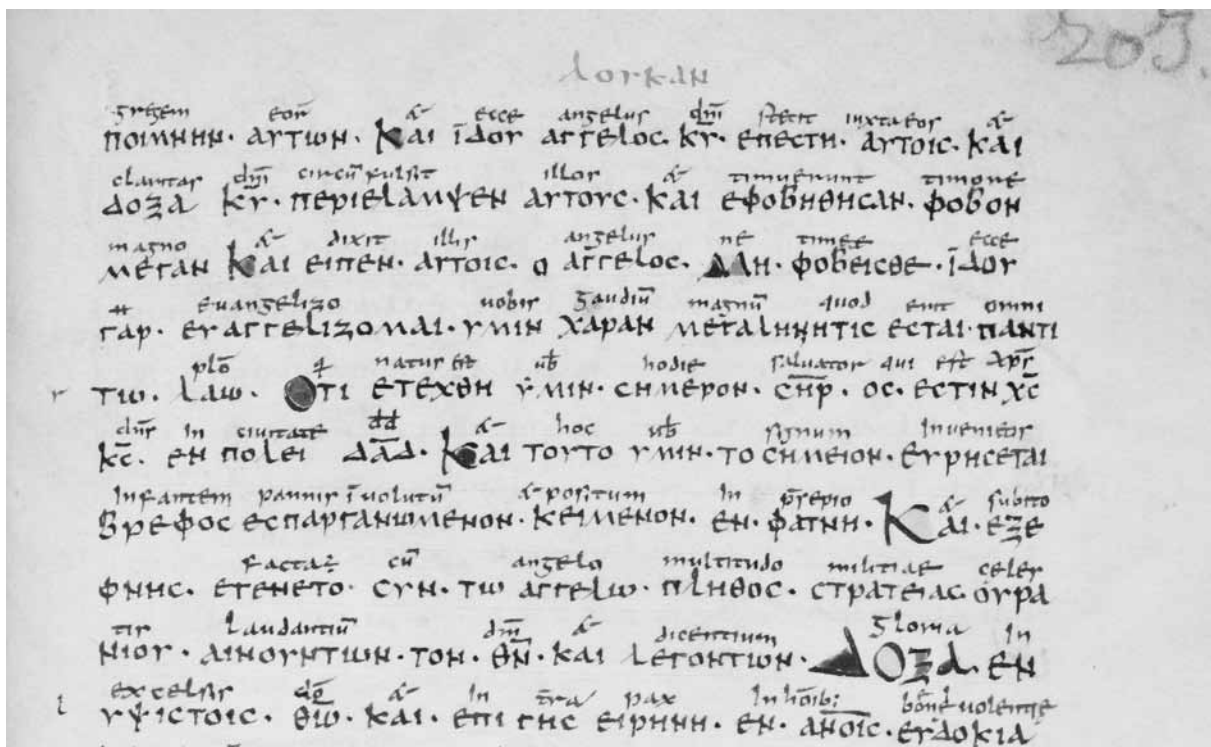 203.
ΛΟΥΚΑΝ
gregem eoȓ & ecce angelus dn̄i stetit iuxta eos &
ΠΟΙΜΝΗΝ· ΑΥΤΩΝ· ΚΑΙ ΪΔΟΥ ΑΓΓΕΛΟC· Κ̅Υ̅· ΕΠΕCΤΗ· ΑΥΤΟΙC· ΚΑΙ
claritas dn̄i circū fulsit illos & timuerunt timore
ΔΟΞΑ Κ̅Υ̅· ΠΕΡΙΕΛΑΜΨΕΝ ΑΥΤΟΥC· ΚΑΙ ΕΦΟΒΗΘΗCΑΝ· ΦΟΒΟΝ
magno & dixit illis angelus ne timete ecce
ΜΕΓΑΝ ΚΑΙ ΕΙΠΕΝ· ΑΥΤΟΙC· Ο ΑΓΓΕΛΟC· ΜΗ· ΦΟΒΕΙCΘΕ· ΪΔΟΥ
euangelizo uobis gaudiū magnū quod erit omni
ΓΑΡ· ΕΥΑΓΓΕΛΙΖΟΜΑΙ· ΥΜΙΝ ΧΑΡΑΝ ΜΕΓΑΛΗΝΗΤΙC ΕCΤΑΙ· ΠΑΝΤΙ
plo̅ natus ē̅ ub̅ hodie saluator qui est xp̅s̅
ΤΩ· ΛΑΩ· ΟΤΙ ΕΤΕΧΘΗ ΥΜΙΝ· CΗΜΕΡΟΝ· C̅Η̅Ρ̅· ΟC· ΕCΤΙΝ Χ̅C̅
dn̄s in ciuitate dd̅ & hoc ub̅ signum inuenietis
Κ̅C̅· ΕΝ ΠΟΛΕΙ Δ̅Α̅Δ̅· ΚΑΙ ΤΟΥΤΟ ΥΜΙΝ· ΤΟ CΗΜΕΙΟΝ· ΕΥΡΗCΕΤΑΙ
Infantem pannis īuolutū & positum in p̄sepio & subito
ΒΡΕΦΟC ΕCΠΑΡΓΑΝΩΜΕΝΟΝ· ΚΕΙΜΕΝΟΝ· ΕΝ· ΦΑΤΝΗ· ΚΑΙ· ΕΞΕ
facta÷ cū angelo multitudo militiae celes
ΦΝΗC· ΕΓΕΝΕΤΟ· CΥΝ· ΤΩ ΑΓΓΕΛΩ· ΠΛΗΘΟC· CΤΡΑΤΕΙΑC· ΟΥΡΑ
tis laudantiū dm̅ & dicentium gloria in
ΝΙΟΥ· ΑΙΝΟΥΝΤΩΝ· ΤΟΝ· Θ̅Ν̅· ΚΑΙ ΛΕΓΟΝΤΩΝ· ΔΟΞΑ· ΕΝ
excelsis do̅ & in t̄ra pax in ho̅ib; bone uolentie
ΥΨΙCΤΟΙC· Θ̅Ω̅· ΚΑΙ· ΕΠΙ ΓΗC ΕΙΡΗΝΗ· ΕΝ· Α̅Ν̅Ο̅ΙC· ΕΥΔΟΚΙΑ